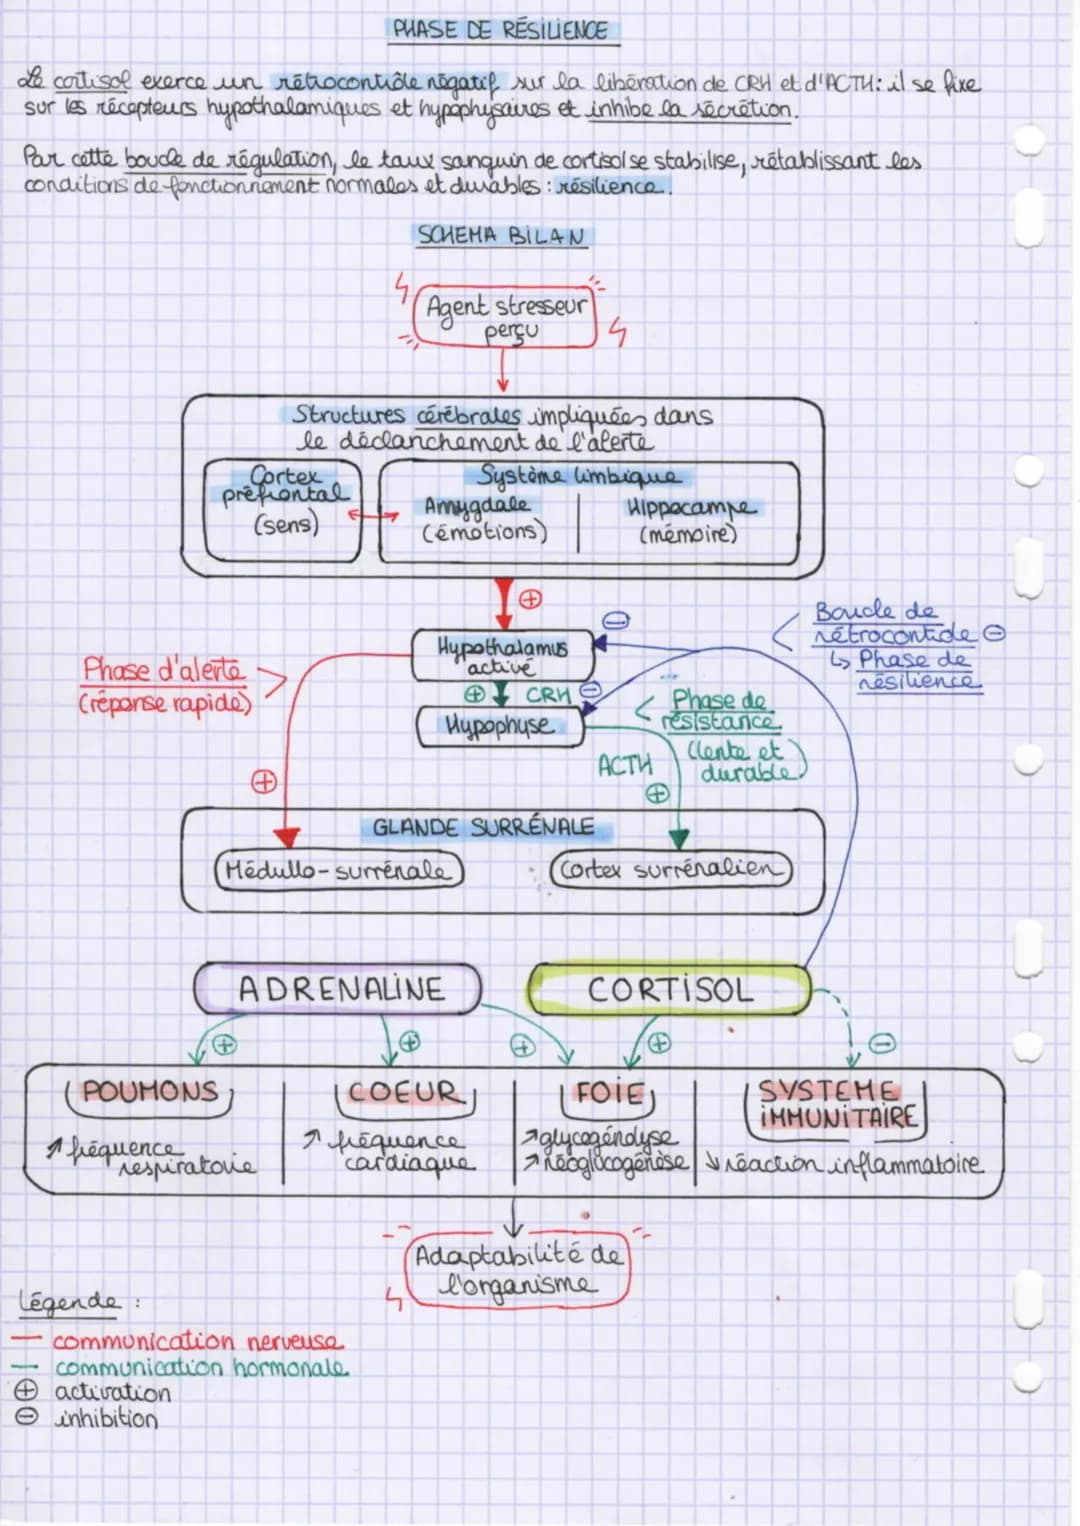 PHASE DE RÉSILIENCE
Le cortisol exerce un rétrocontrôle négatif sur la libération de CRH et d'ACTH : il se fixe
sur les récepteurs hypothalamiques et hypophysaires et inhibe la sécrétion.
Par cette boucle de régulation, le taux sanguin de cortisol se stabilise, rétablissant les
conditions de fonctionnement normales et durables : résilience.
SCHEMA BILAN
Agent stresseur
perçu
Structures cérébrales impliquées dans
le déclanchement de l'alerte
Cortex
préfrontal
(sens)
Système limbique
Amygdale
(émotions)
Hippocampe
(mémoire)
⊕
⊖
Boucle de
rétrocontrôle ⊖
↳ Phase de
résilience
Hypothalamus
activé
Phase d'alerte
(réponse rapide)
⊕ CRH ⊖
Hypophyse
Phase de
résistance
(lente et
durable)
ACTH
⊕
⊕
GLANDE SURRÉNALE
Médullo-surrénale
Cortex surrénalien
ADRENALINE
CORTISOL
⊕ ⊕ ⊕ ⊕ ⊖
POUMONS
↗ fréquence
respiratoire
COEUR
↗ fréquence
cardiaque
FOIE
↗ glycogénolyse
↗ néoglucogénèse
SYSTEME
IMMUNITAIRE
↘ réaction inflammatoire
Adaptabilité de
l'organisme
Légende :
— communication nerveuse
— communication hormonale
⊕ activation
⊖ inhibition